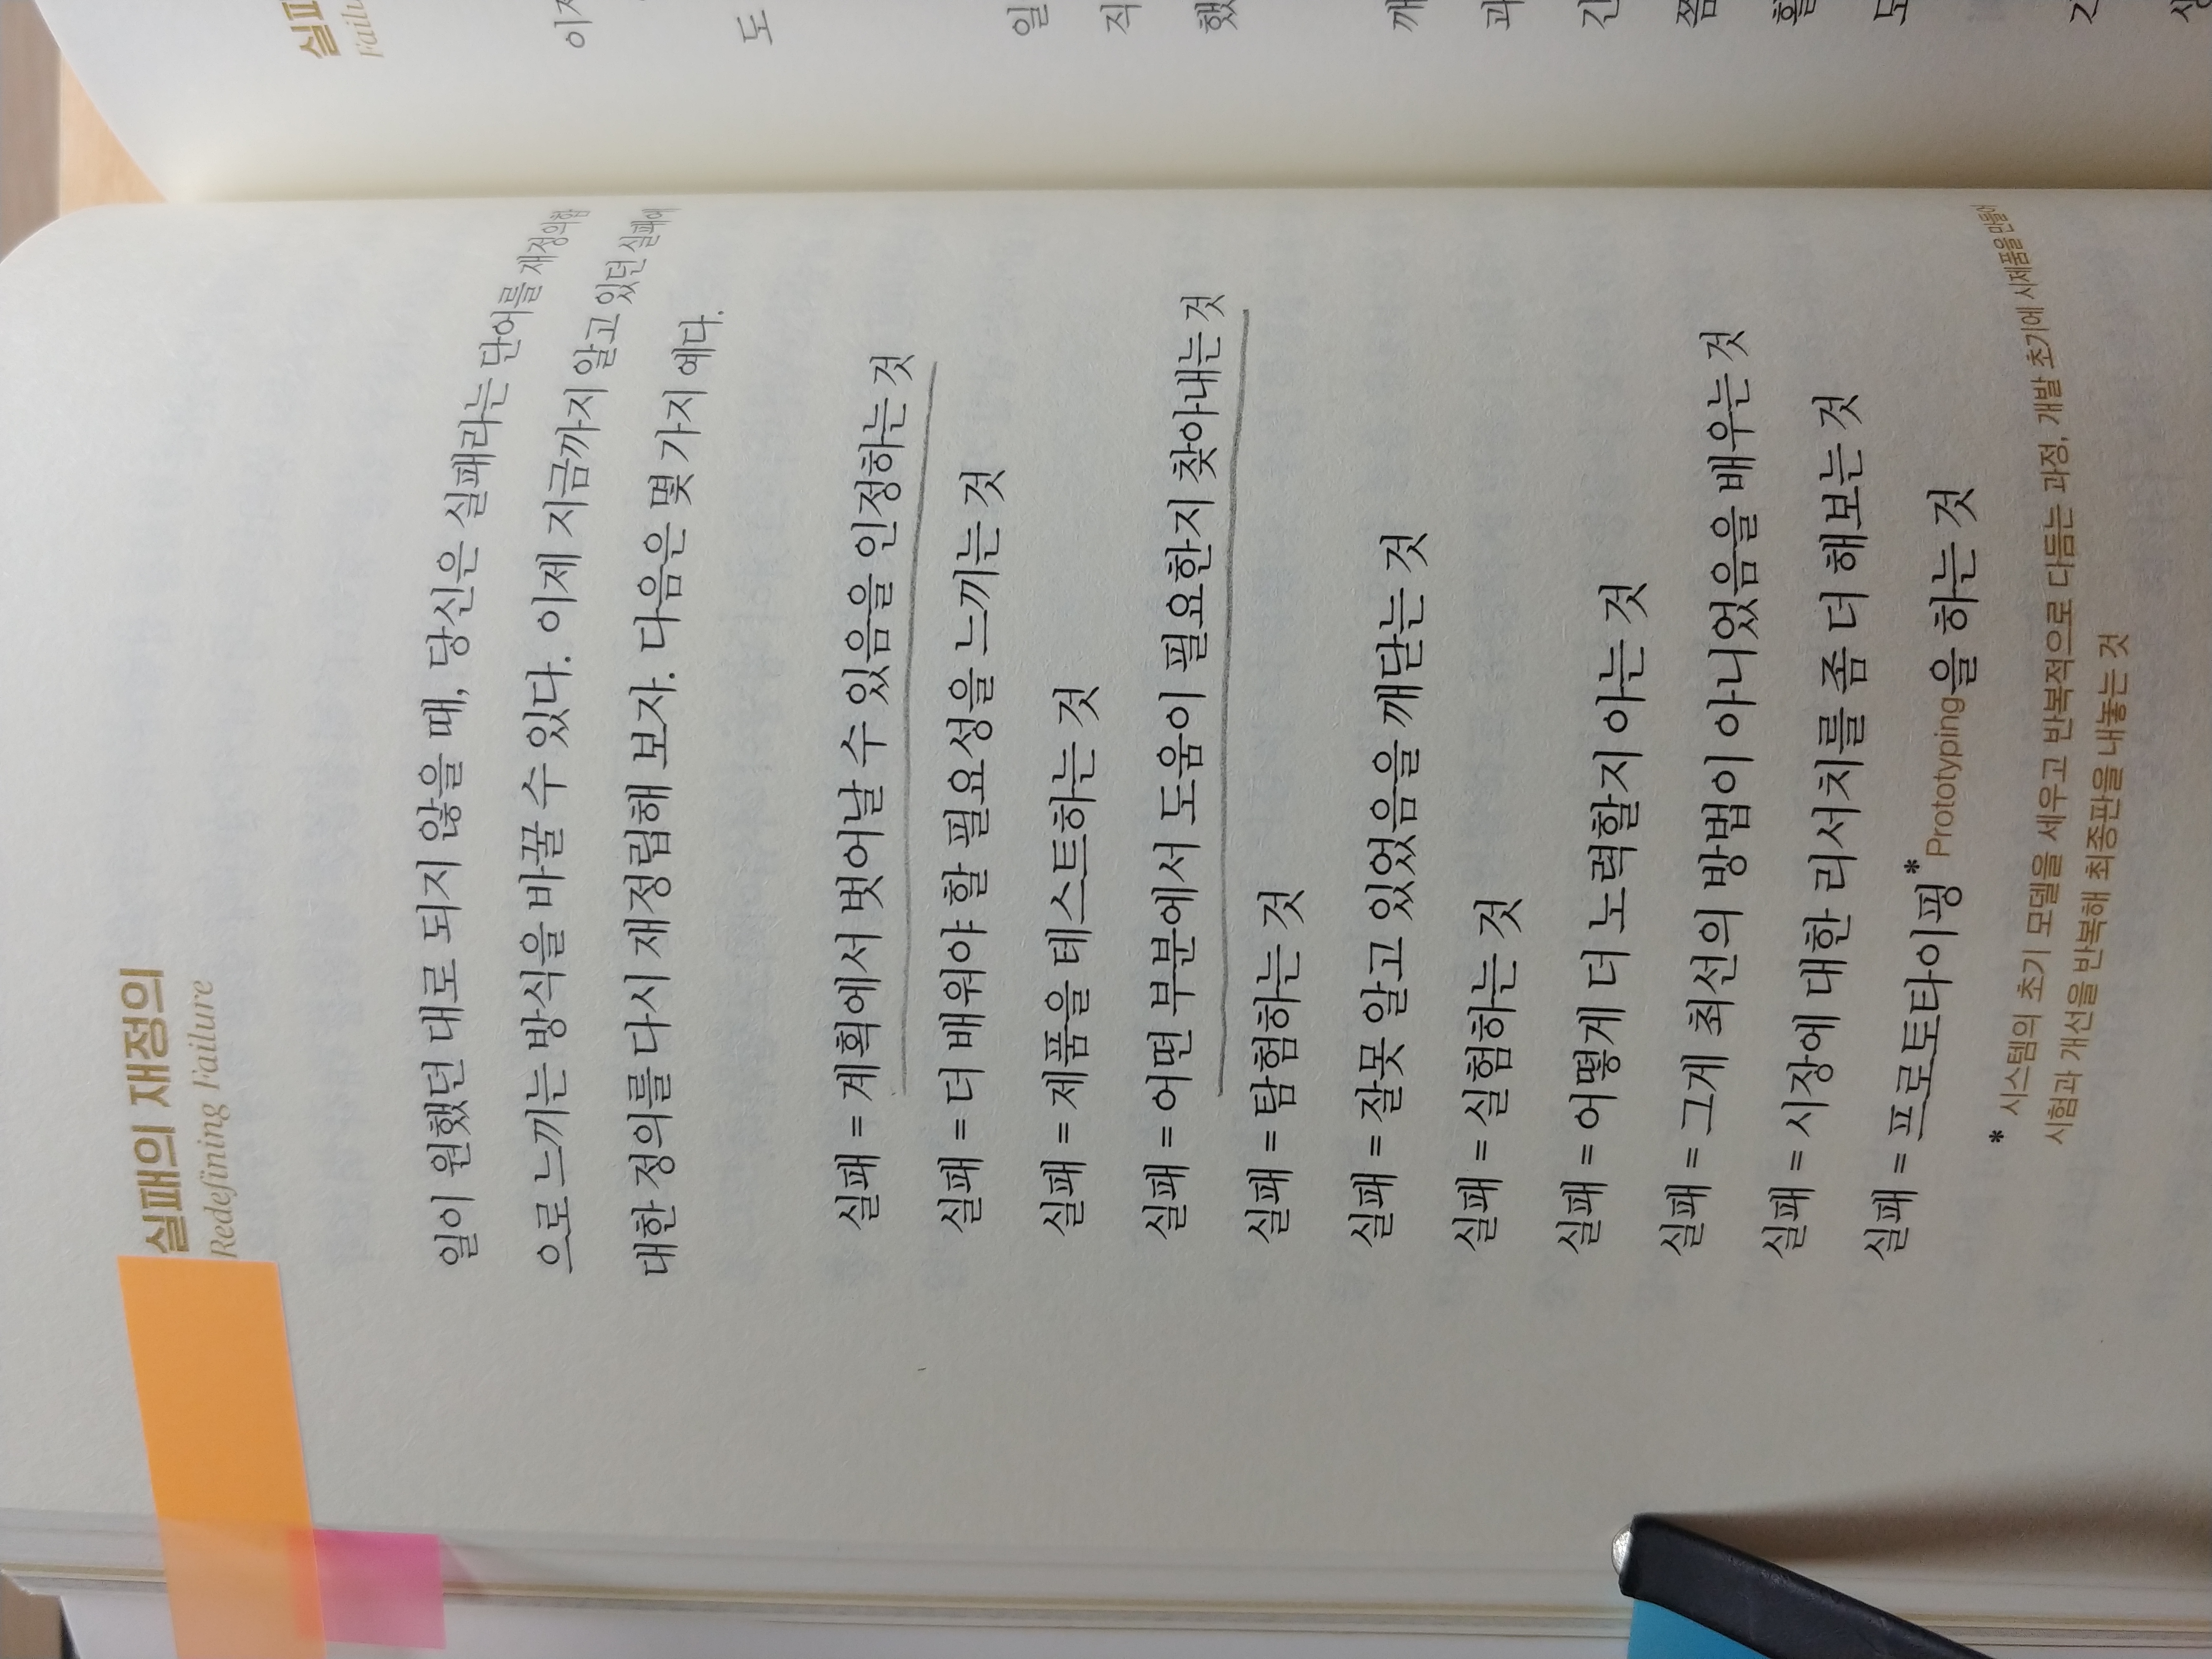 실패의 재정의
Redefining Failure
일이 원했던 대로 되지 않을 때, 당신은 실패라는 단어를 재정의함
으로 느끼는 방식을 바꿀 수 있다. 이제 지금까지 알고 있던 실패에
대한 정의를 다시 재정립해 보자. 다음은 몇 가지 예다.
실패 = 계획에서 벗어날 수 있음을 인정하는 것
실패 = 더 배워야 할 필요성을 느끼는 것
실패 = 제품을 테스트하는 것
실패 = 어떤 부분에서 도움이 필요한지 찾아내는 것
실패 = 탐험하는 것
실패 = 잘못 알고 있었음을 깨닫는 것
실패 = 실험하는 것
실패 = 어떻게 더 노력할지 아는 것
실패 = 그게 최선의 방법이 아니었음을 배우는 것
실패 = 시장에 대한 리서치를 좀 더 해보는 것
실패 = 프로토타이핑* Prototyping을 하는 것
* 시스템의 초기 모델을 세우고 반복적으로 다듬는 과정, 개발 초기에 시제품을 만들어
시험과 개선을 반복해 최종판을 내놓는 것
도
일
직
했
깨
과